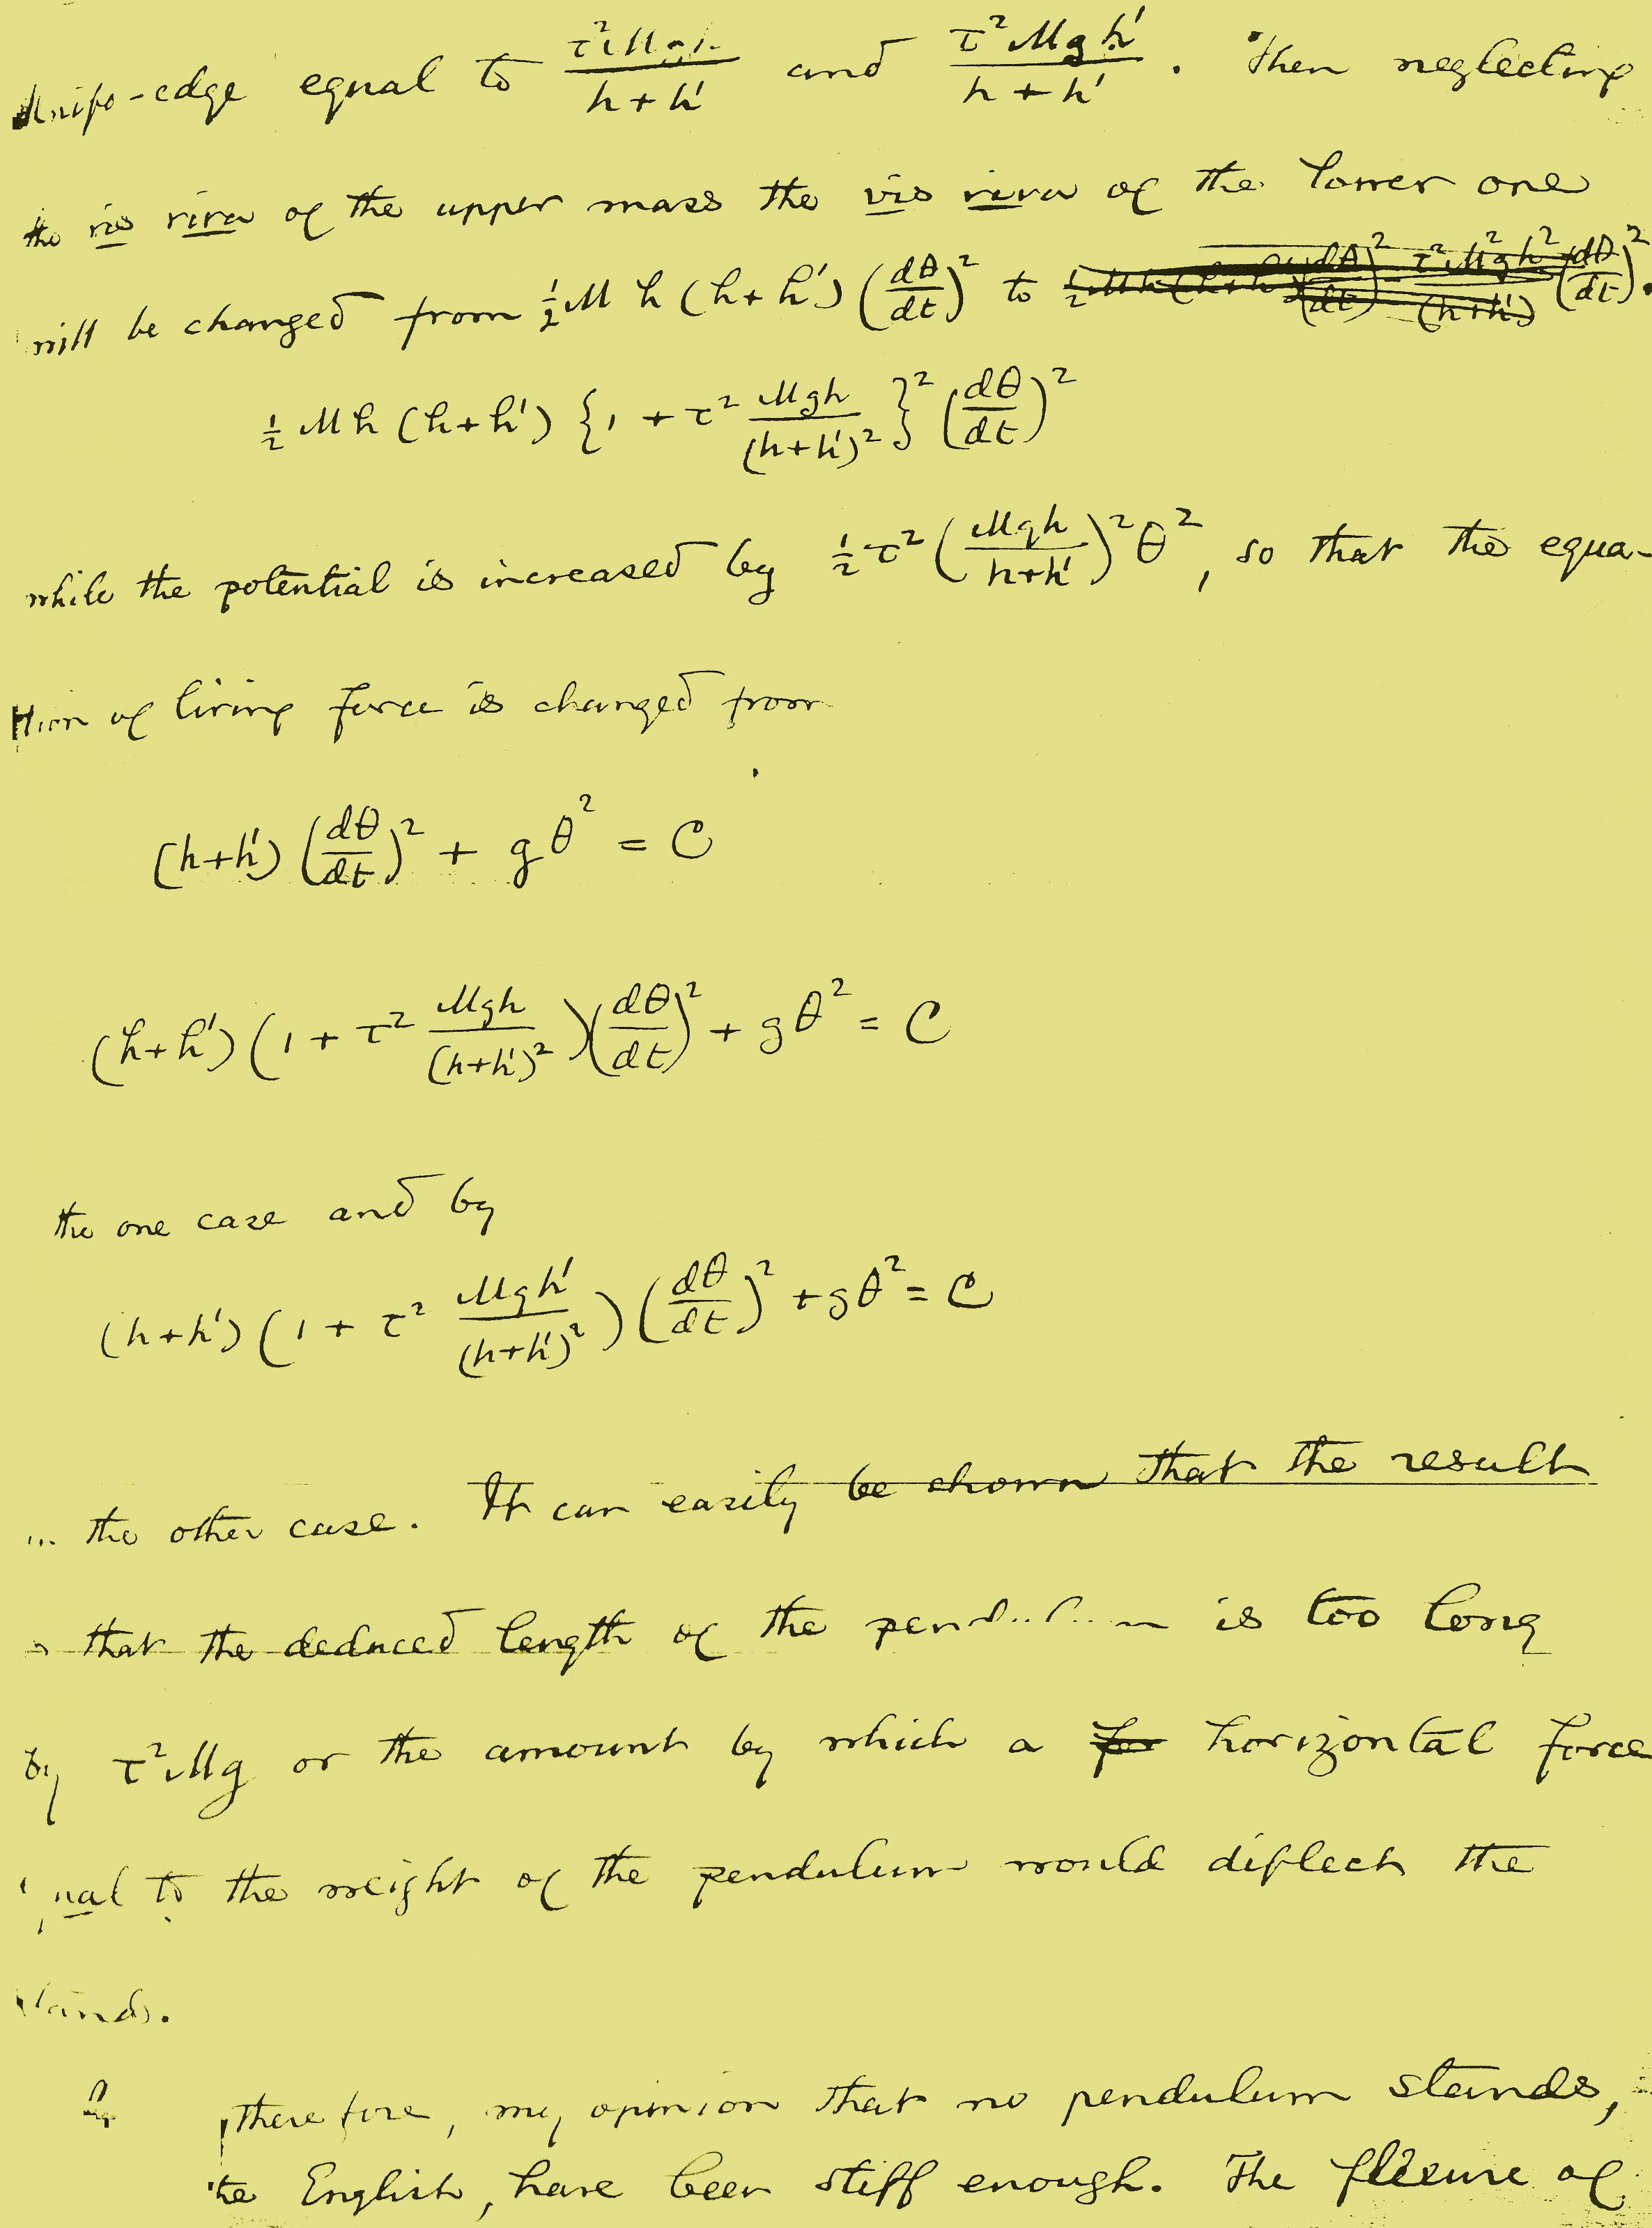 Knife-edge equal to τ²Mgh/(h+h') and τ²Mgh'/(h+h'). Then neglecting
the vis viva of the upper mass the vis viva of the lower one
will be changed from ½Mh(h+h')(dθ/dt)² to
½Mh(h+h'){1+τ² Mgh/(h+h')²}²(dθ/dt)²
while the potential is increased by ½τ²(Mgh/(h+h'))²θ², so that the equa-
tion of living force is changed from
(h+h')(dθ/dt)² + gθ² = C
(h+h')(1+τ² Mgh/(h+h')²)(dθ/dt)² + gθ² = C
the one case and by
(h+h')(1+τ² Mgh'/(h+h')²)(dθ/dt)² + gθ² = C
the other case. It can easily be shown that the result
that the deduced length of the pendulum is too long
by τ²Mg or the amount by which a for horizontal force
to the weight of the pendulum would diflect the
therefore, my opinion that no pendulum stands,
the English, have been stiff enough. The flexure of